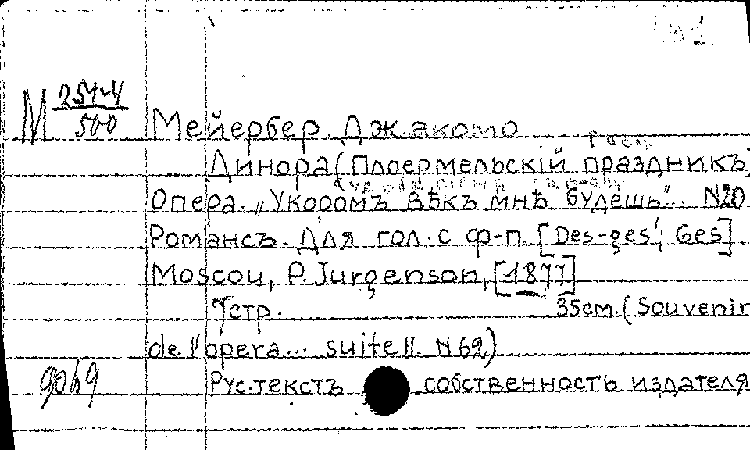 М 254-4
500
Мейербер. Джакомо
Динора (Плоермельскiй праздникъ)
Опера. „Укоромъ вѣкъ мнѣ будешь". N20
Романсъ. Для гол. с ф-п. [Des-ges', Ges].
Moscou, P. Jurgenson, [1877]
7стр. 35см. (Souvenir
de l'opera... suite II. N62)
Рус. текстъ собственность издателя